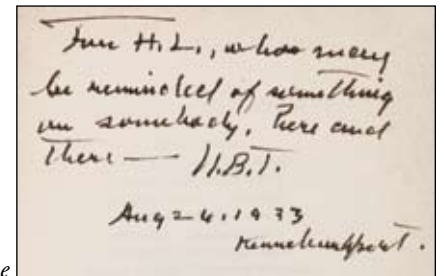 For H.L., who may
be reminded of something
or somebody, here and
there — H.B.T.
Aug 24. 1933
Kennebunkport.
e